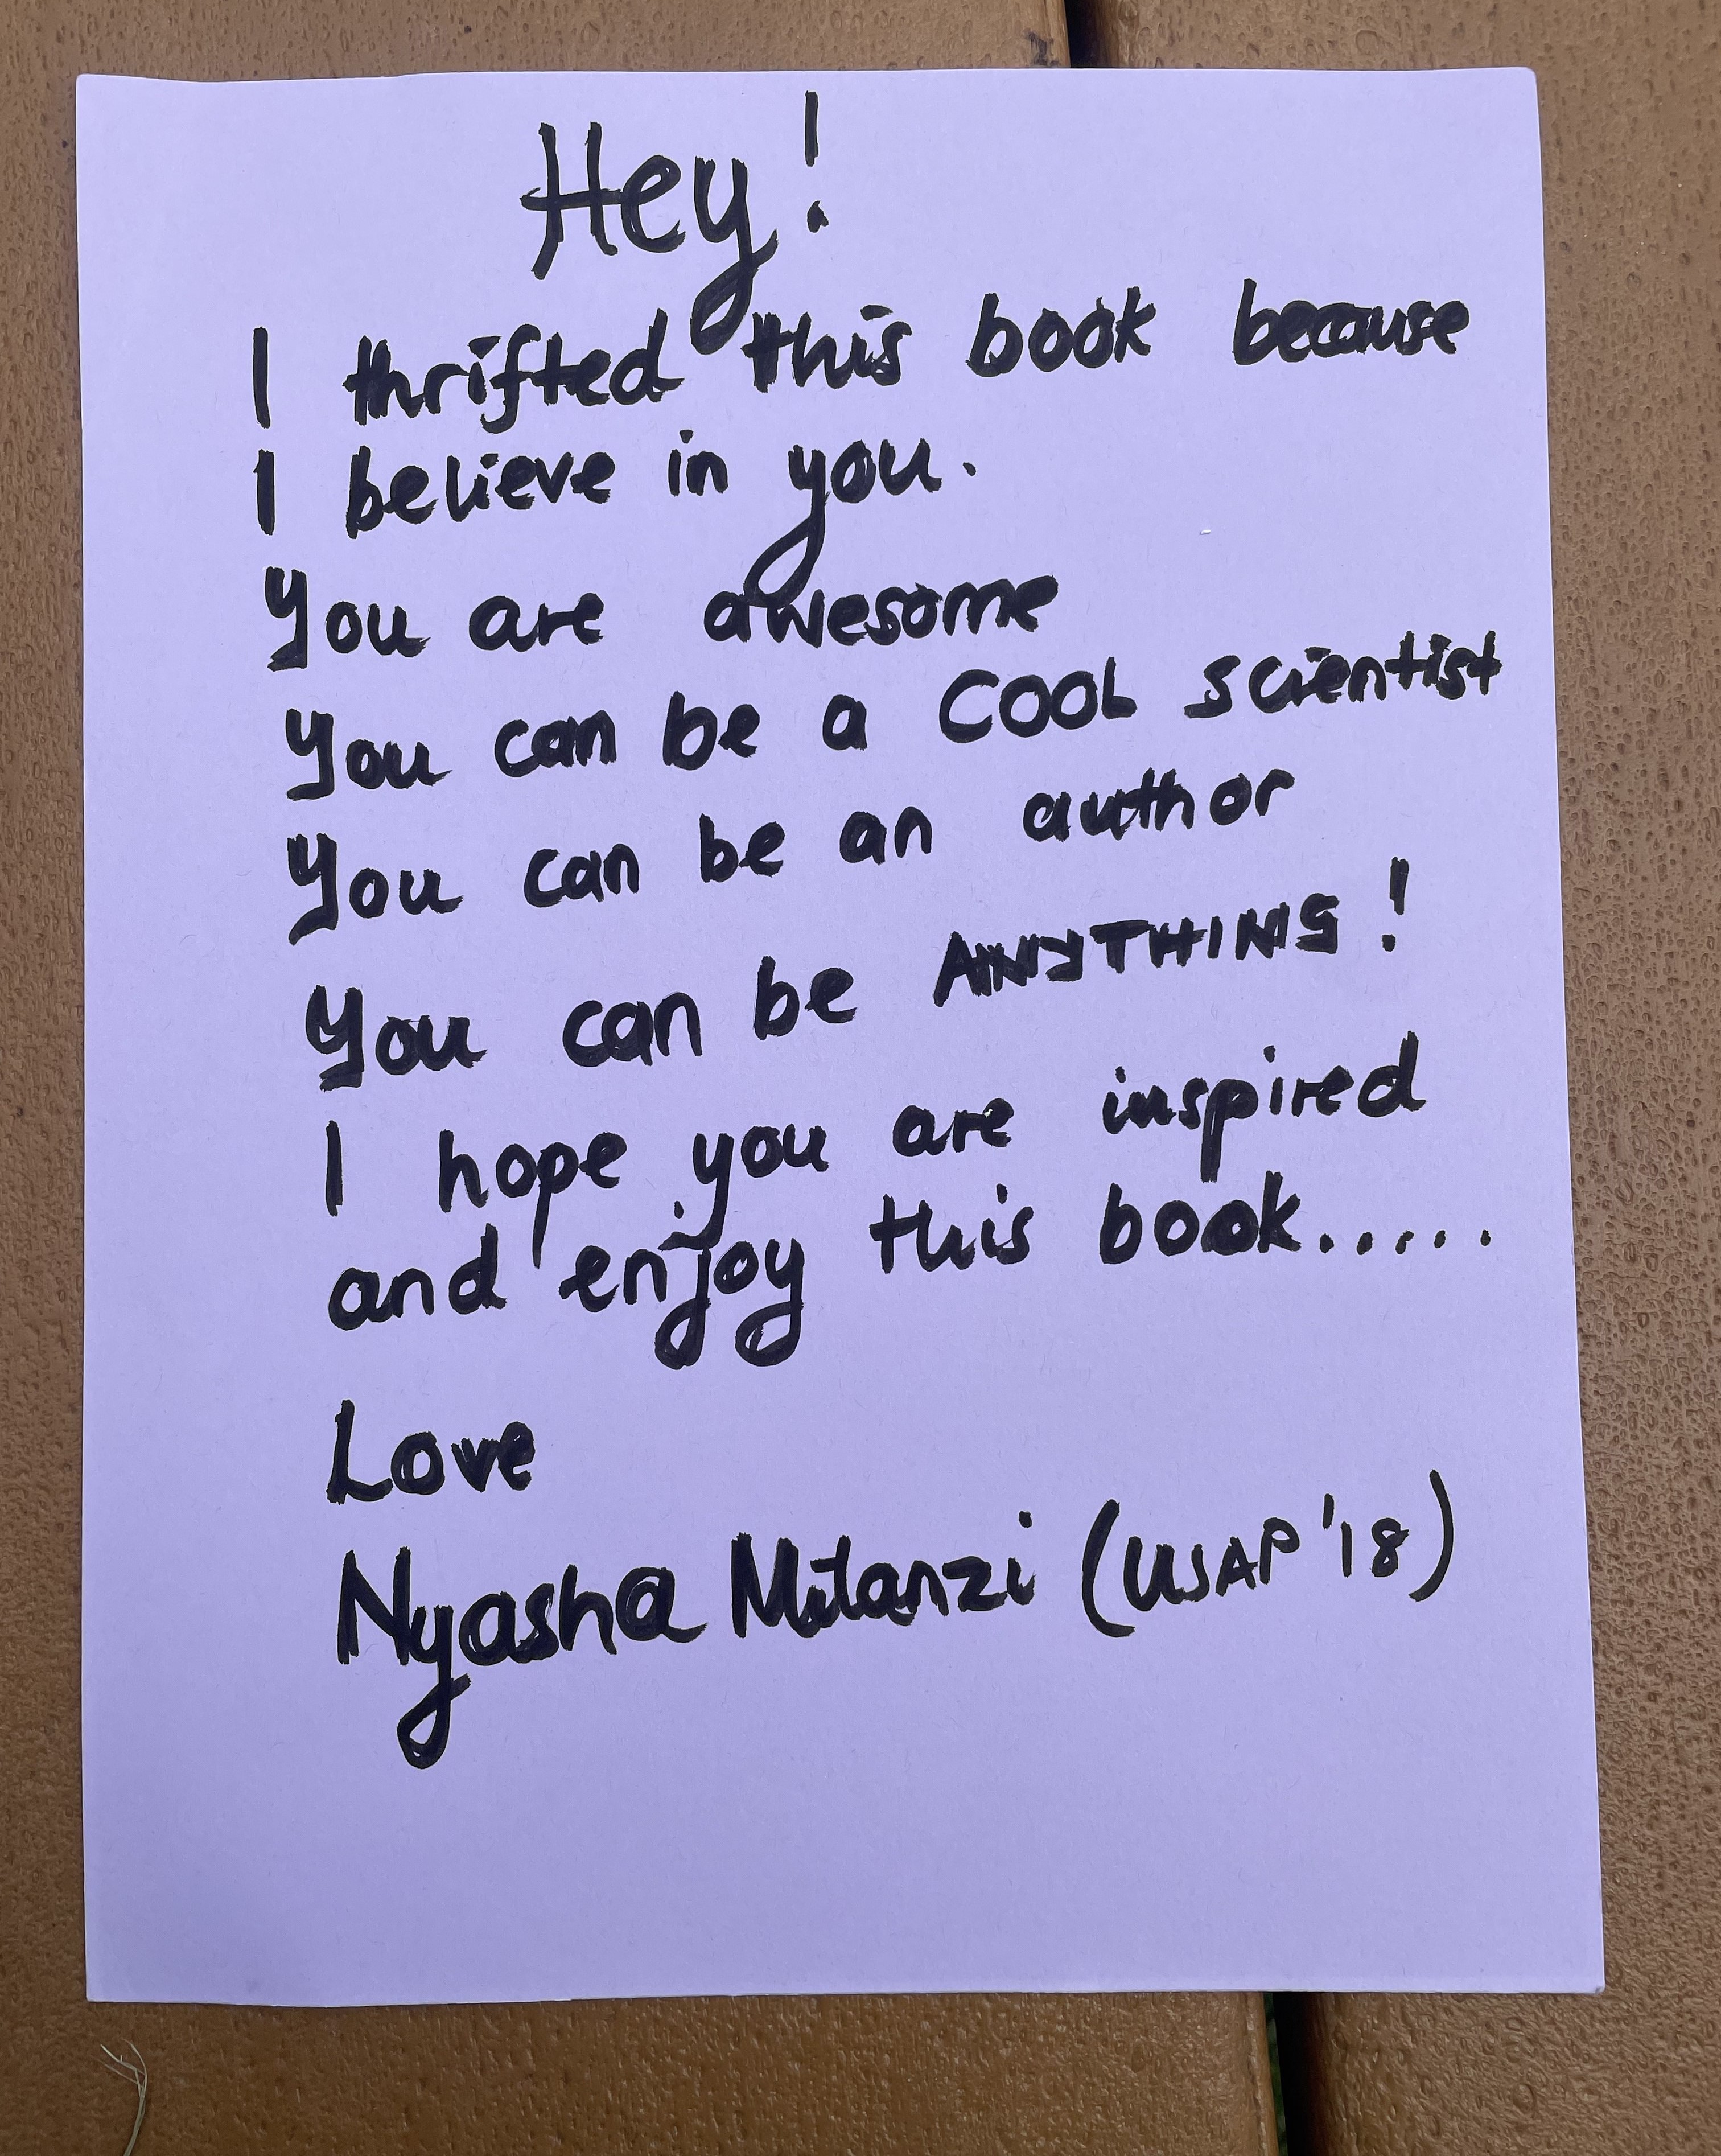 Hey!
I thrifted this book because
I believe in you.
You are awesome
You can be a COOL scientist
You can be an author
You can be ANYTHING!
I hope you are inspired
and enjoy this book.....
Love
Nyasha Mitanzi (USAP '18)